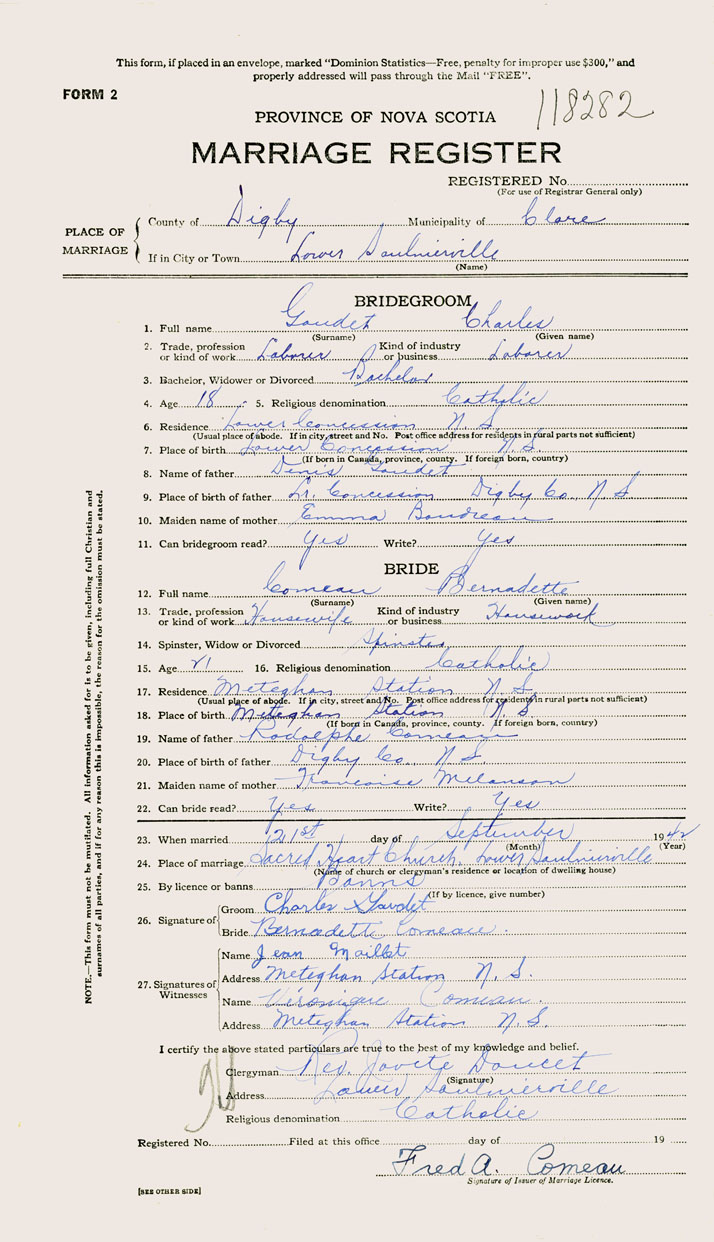 This form, if placed in an envelope, marked "Dominion Statistics—Free, penalty for improper use $300," and
properly addressed will pass through the Mail "FREE".
FORM 2
118282
PROVINCE OF NOVA SCOTIA
MARRIAGE REGISTER
REGISTERED No.
(For use of Registrar General only)
PLACE OF MARRIAGE
County of Digby Municipality of Clare
If in City or Town Lower Saulnierville
(Name)
BRIDEGROOM
1. Full name Gaudet Charles
(Surname) (Given name)
2. Trade, profession or kind of work Laborer Kind of industry or business Laborer
3. Bachelor, Widower or Divorced Bachelor
4. Age 18 5. Religious denomination Catholic
6. Residence Lower Concession N. S.
(Usual place of abode. If in city, street and No. Post office address for residents in rural parts not sufficient)
7. Place of birth Lower Concession N. S.
(If born in Canada, province, county. If foreign born, country)
8. Name of father Denis Gaudet
9. Place of birth of father Lr. Concession Digby Co. N S
10. Maiden name of mother Emma Boudreau
11. Can bridegroom read? Yes Write? Yes
BRIDE
12. Full name Comeau Bernadette
(Surname) (Given name)
13. Trade, profession or kind of work Housewife Kind of industry or business Housework
14. Spinster, Widow or Divorced Spinster
15. Age 21 16. Religious denomination Catholic
17. Residence Meteghan Station N. S.
(Usual place of abode. If in city, street and No. Post office address for residents in rural parts not sufficient)
18. Place of birth Meteghan Station N. S.
(If born in Canada, province, county. If foreign born, country)
19. Name of father Rodolphe Comeau
20. Place of birth of father Digby Co. N S
21. Maiden name of mother Francoise Melanson
22. Can bride read? Yes Write? Yes
23. When married 21st day of September 1942
(Month) (Year)
24. Place of marriage Sacred Heart Church, Lower Saulnierville
(Name of church or clergyman's residence or location of dwelling house)
25. By licence or banns Banns
(If by licence, give number)
26. Signature of
Groom Charles Gaudet
Bride Bernadette Comeau.
27. Signatures of Witnesses
Name Jean Maillet
Address Meteghan Station N. S.
Name Véronique Comeau.
Address Meteghan Station N. S.
I certify the above stated particulars are true to the best of my knowledge and belief.
Clergyman Rev. Doucet
(Signature)
Address Lower Saulnierville
Religious denomination Catholic
Registered No. Filed at this office day of 19
Fred A. Comeau
Signature of Issuer of Marriage Licence.
[SEE OTHER SIDE]
NOTE.—This form must not be mutilated. All information asked for is to be given, including full Christian and
surnames of all parties, and if for any reason this is impossible, the reason for the omission must be stated.